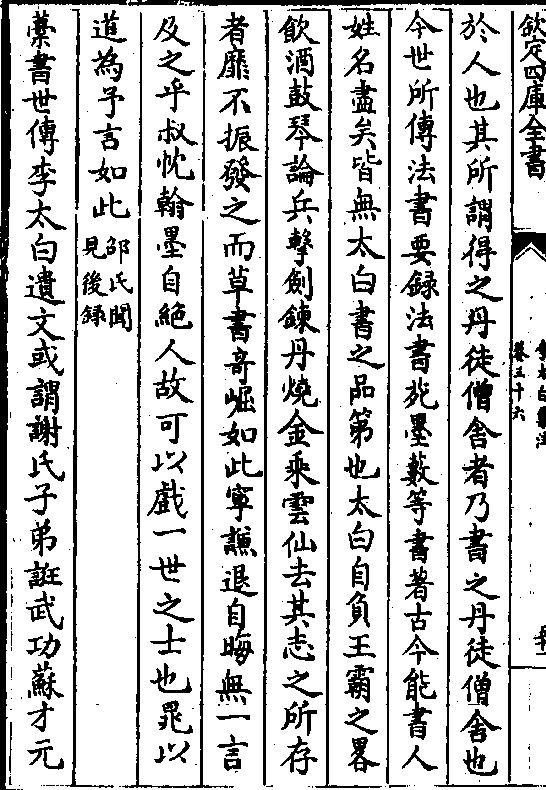 欽定四庫全書
卷三十六
於人也其所謂得之丹徒僧舍者乃書之丹徒僧舍也
今世所傳法書要録法書苑墨藪等書著古今能書人
姓名盡矣皆無太白書之品第也太白自負王霸之畧
飲酒鼓琴論兵擊劍鍊丹燒金乘雲仙去其志之所存
者靡不振發之而草書奇崛如此寧謙退自晦無一言
及之乎叔忱翰墨自絶人故可以戲一世之士也晁以
道為予言如此邵氏聞
見後録
藁書世傳李太白遺文或謂謝氏子弟誑武功蘇才元